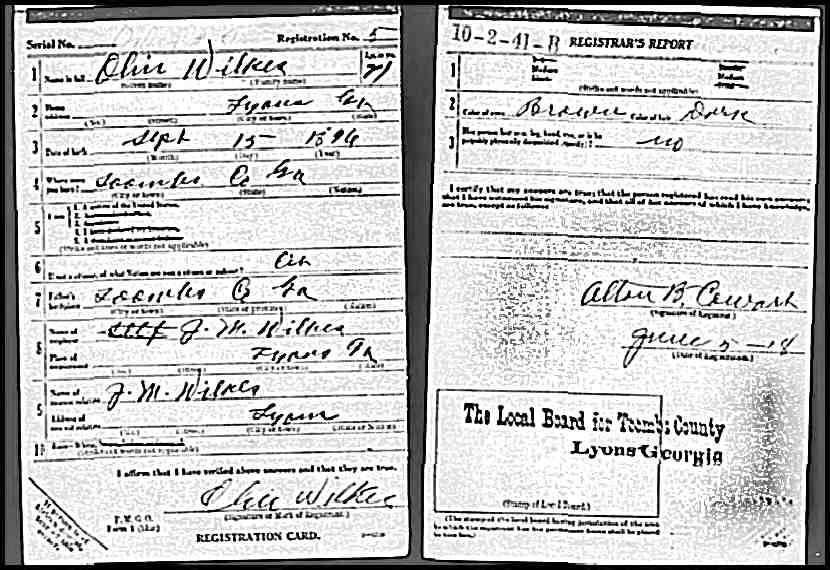 Serial No. Registration No. 5
1 Name in full Olin Wilkes Age in yrs. 21
(Given name) (Family name)
2 Home address Lyons Ga
(No.) (Street) (City or town) (State)
3 Date of birth Sept 15 1896
(Month) (Day) (Year)
4 Where were you born? Toombs Co Ga
(City or town) (State) (Nation)
5 I am
(Strike out lines or words not applicable)
6 If not a citizen, of what Nation are you a citizen or subject?
7 Father's birthplace Toombs Co Ga
(City or town) (State or province) (Nation)
8 Name of employer J. M. Wilkes
Place of employment Lyons Ga
(No.) (Street) (City or town) (State)
9 Name of nearest relative J. M. Wilkes
Address of nearest relative Lyons
(No.) (Street) (City or town) (State or Nation)
I affirm that I have verified above answers and that they are true.
Olin Wilkes
(Signature or Mark of Registrant.)
P. M. G. O.
Form 1 (blue)
REGISTRATION CARD.
10-2-41-B REGISTRAR'S REPORT
1
(Strike out words not applicable)
2 Color of eyes Brown Color of hair Dark
3 Has person lost arm, leg, hand, eye, or is he
no
I certify that my answers are true; that the person registered has read his own answers;
that I have witnessed his signature, and that all of his answers of which I have knowledge,
are true, except as follows:
Alton B. Cowart
(Signature of Registrar.)
June 5-18
(Date of Registration.)
The Local Board for Toombs County
Lyons Georgia
(Stamp of Local Board.)
(The stamp of the local board having jurisdiction of the area
in which the registrant has his permanent home shall be placed
in this box.)